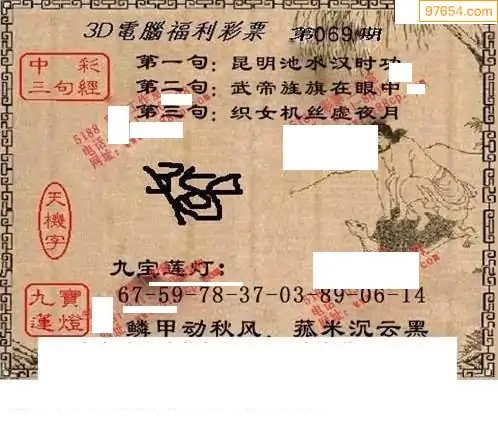 97654.com
3D電腦福利彩票 第069期
中彩三句經
第一句：昆明池水汉时功
第二句：武帝旌旗在眼中
第三句：织女机丝虚夜月
天機字
九宝莲灯：
67-59-78-37-03-89-06-14
九寶蓮燈
鳞甲动秋风，菰米沉云黑